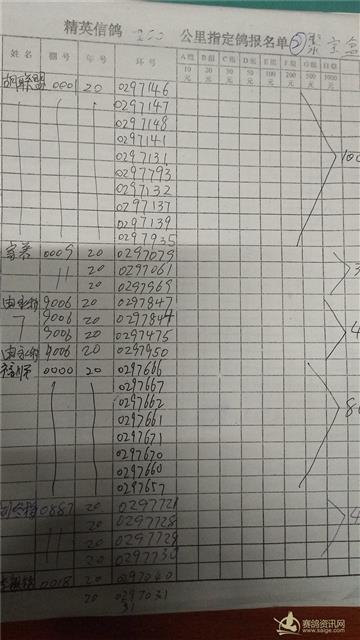 精英信鸽 200 公里指定鸽报名单
姓名 棚号 年号 环号 A组 10元 B组 20元 C组 30元 D组 50元 E组 100元 F组 200元 G组 500元 H组 1000元
联盟 0001 20 0297146
0297147
0297148
0297141
0297131
0297793
0297132
0297137
0297139
0297935
0009 20 0297079
11 20 0297061
20 0297969
9006 20 0297847
9006 20 0297844
9006 20 0297475
9006 20 0297950
0000 20 0297666
0297667
0297662
0297661
0297671
0297670
0297660
0297657
0887 20 0297721
20 0297728
20 0297729
20 0297730
0018 20 0297040
20 0297031
31
赛鸽资讯网
www.saige.com